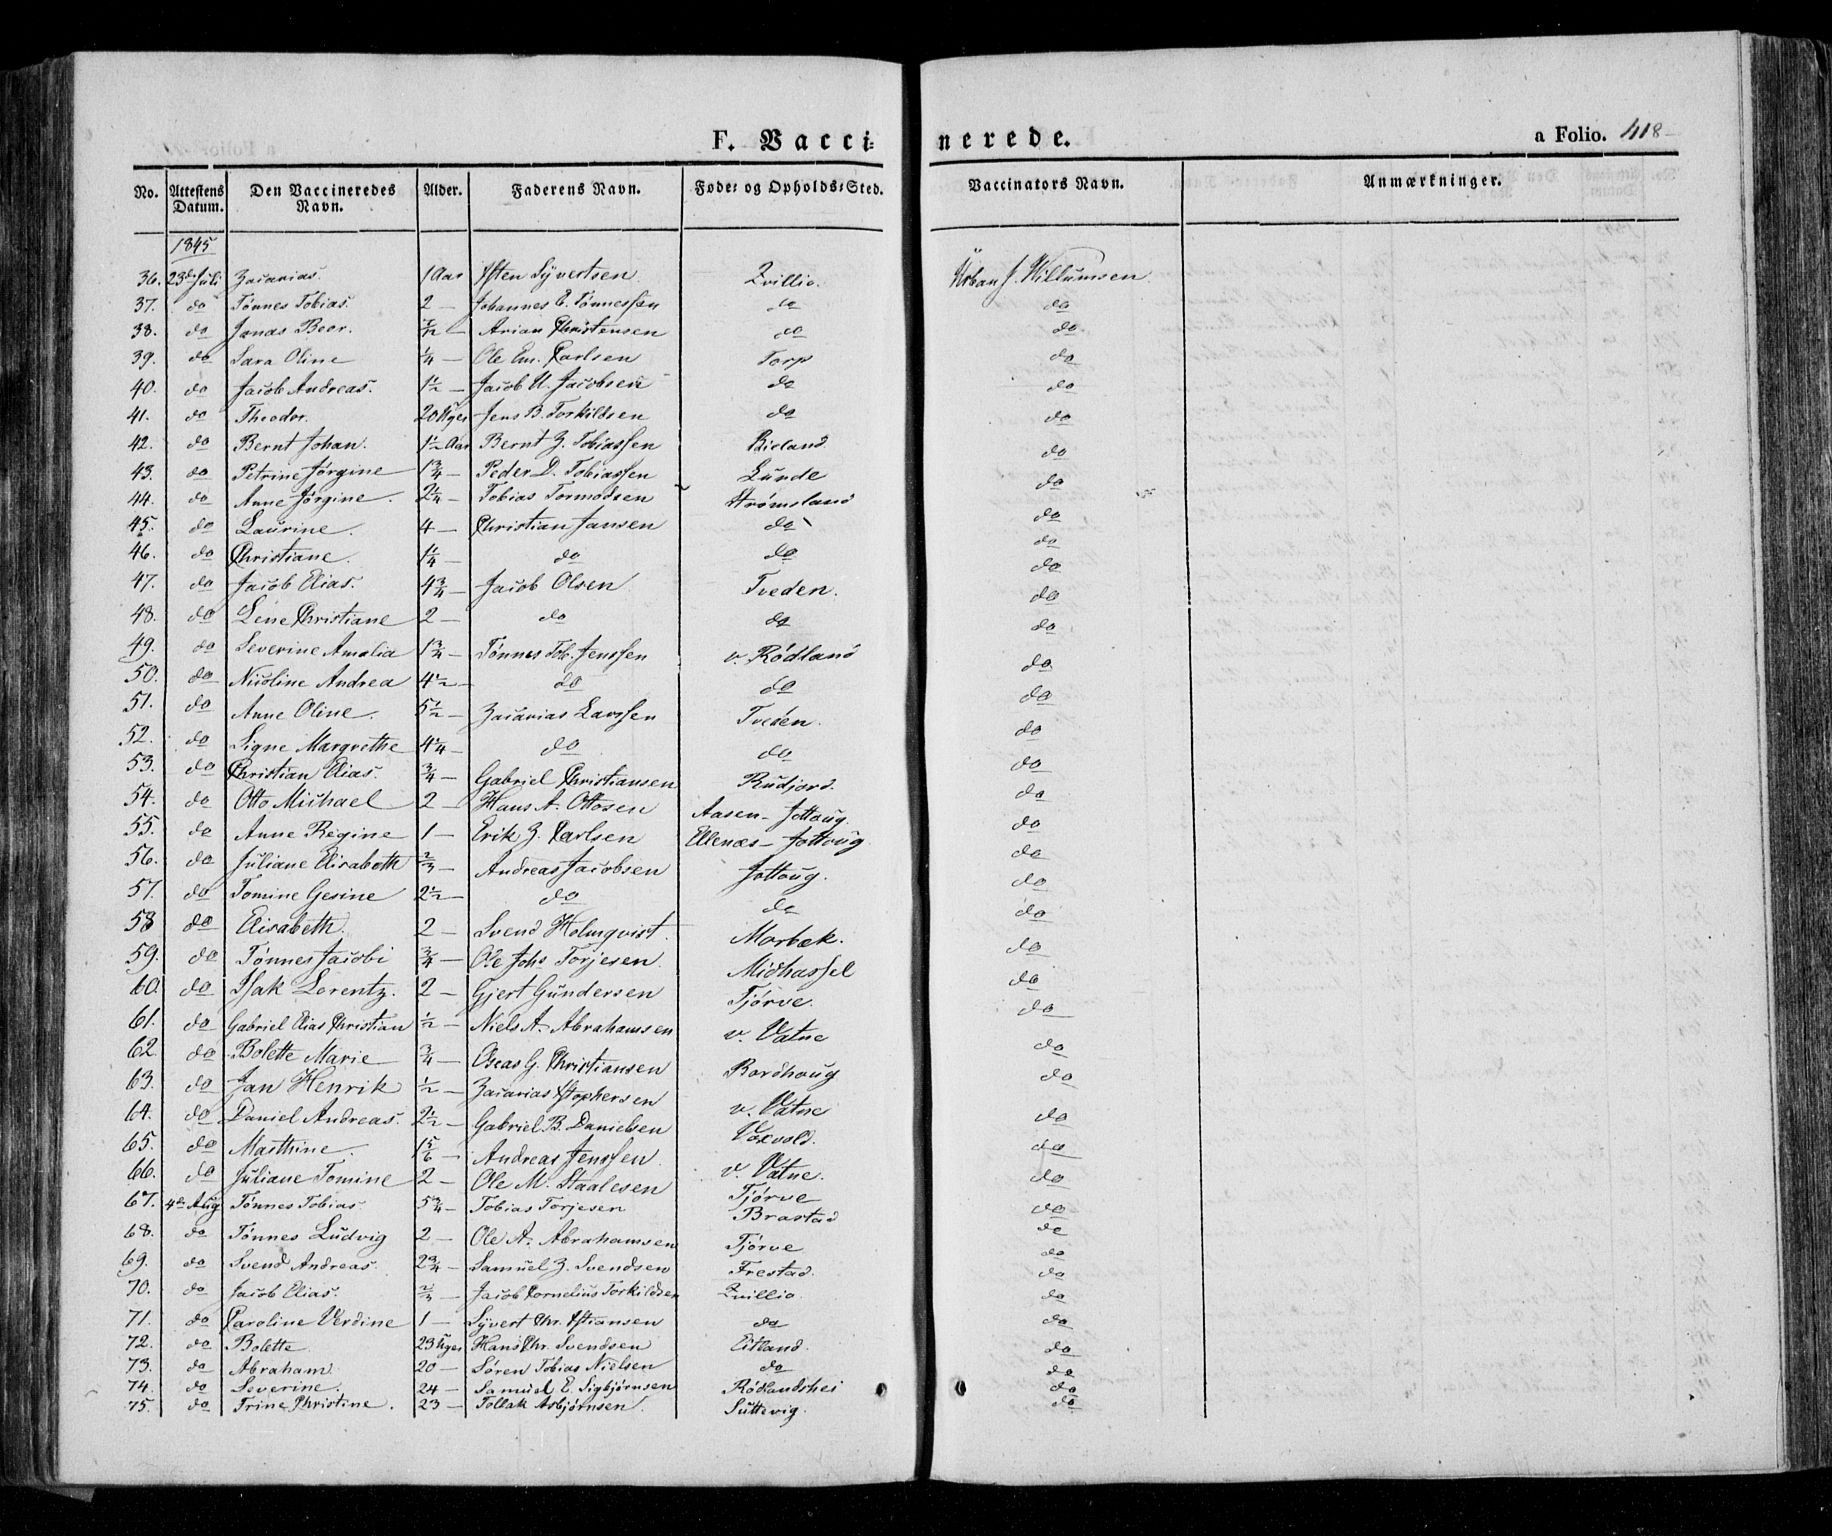 F. Vaccinerede.
a Folio. 418
No. Attestens Datum. Den Vaccineredes Navn. Alder. Faderens Navn. Føde- og Opholds-Sted. Vaccinators Navn. Anmærkninger.
1845
36. 23de Juli Zacarias. 1 Aar Østen Syvertsen Qvillio. Urban J. Willumsen
37. do Tønnes Tobias. 2 — Johannes E. Tønnessen do do
38. do Jonas Beer. — Arian Christensen do do
39. do Sara Oline ¼ — Ole Em. Carlsen Torp do
40. do Jacob Andreas. 1½ — Jacob U. Jacobsen do do
41. do Theodor. 20 Uger Jens B. Torkildsen do do
42. do Bernt Johan. 1½ Aar Bernt Z. Tobiassen Birland do
43. do Petrine Jørgine 1¾ — Peder D. Tobiassen Lunde do
44. do Anne Jørgine. 2¼ — Tobias Tormodsen Strømsland do
45. do Laurine. 4 — Christian Jansen do do
46. do Christiane. 1¼ — do do do
47. do Jacob Elias. 4¾ — Jacob Olsen Tveden. do
48. do Lene Christiane 2 — do do do
49. do Severine Amalia 1¾ — Tønnes Tob. Jenssen v. Rødland do
50. do Nicoline Andrea 4½ — do do do
51. do Anne Oline. 5½ — Zacarias Larssen Tveden. do
52. do Signe Margrethe 4¼ — do do do
53. do Christian Elias. ¾ — Gabriel Christiansen Rudjord. do
54. do Otto Michael 2 — Hans A. Ottosen Aasen - Jottoug. do
55. do Anne Regine 1 — Erik Z. Carlsen Ellenæs - Jottoug do
56. do Juliane Elisabeth ⅔ — Andreas Jacobsen Jottoug. do
57. do Tomine Gesine 2½ — do do do
58 do Elisabeth. 2 — Svend Holmqvist. Morbæk. do
59. do Tønnes Jacobi ¾ — Ole Johs Torjesen Midhassel do
60. do Isak Lorentz. 2 — Gjert Gundersen Tjørve. do
61. do Gabriel Elias Christian ½ — Niels A. Abrahamsen v. Vatne do
62. do Bolette Marie ¾ — Oseas G. Christiansen Bordhoug do
63. do Jan Henrik ½ — Zacarias Stophersen v. Vatne do
64. do Daniel Andreas. 2½ — Gabriel B. Danielsen Voxvold. do
65. do Masthine. 1⅚ — Andreas Jenssen v. Vatne. do
66. do Juliane Tomine 2 — Ole M. Staalesen Tjørve do
67. 4de Aug Tønnes Tobias 5¾ — Tobias Torjesen Brastad do
68. do Tønnes Ludvig 2 — Ole A. Abrahamsen Tjørve do
69. do Svend Andreas. 2¾ — Samuel Z. Svendsen Frestad. do
70. do Jacob Elias. ⅔ — Jacob Cornelius Torkildsen Qvillio. do
71. do Caroline Verdine 1 — Syvert Chr. Østiansen do do
72. do Bolette. 23 Uger Hans Chr. Svendsen Eitland. do
73. do Abraham 20 — Søren Tobias Nielsen do do
74. do Severine. 24 — Samuel E. Sigbjørnsen Rødlandshei do
75. do Trine Christine. 23 — Tollak Asbjørnsen Suttevig. do